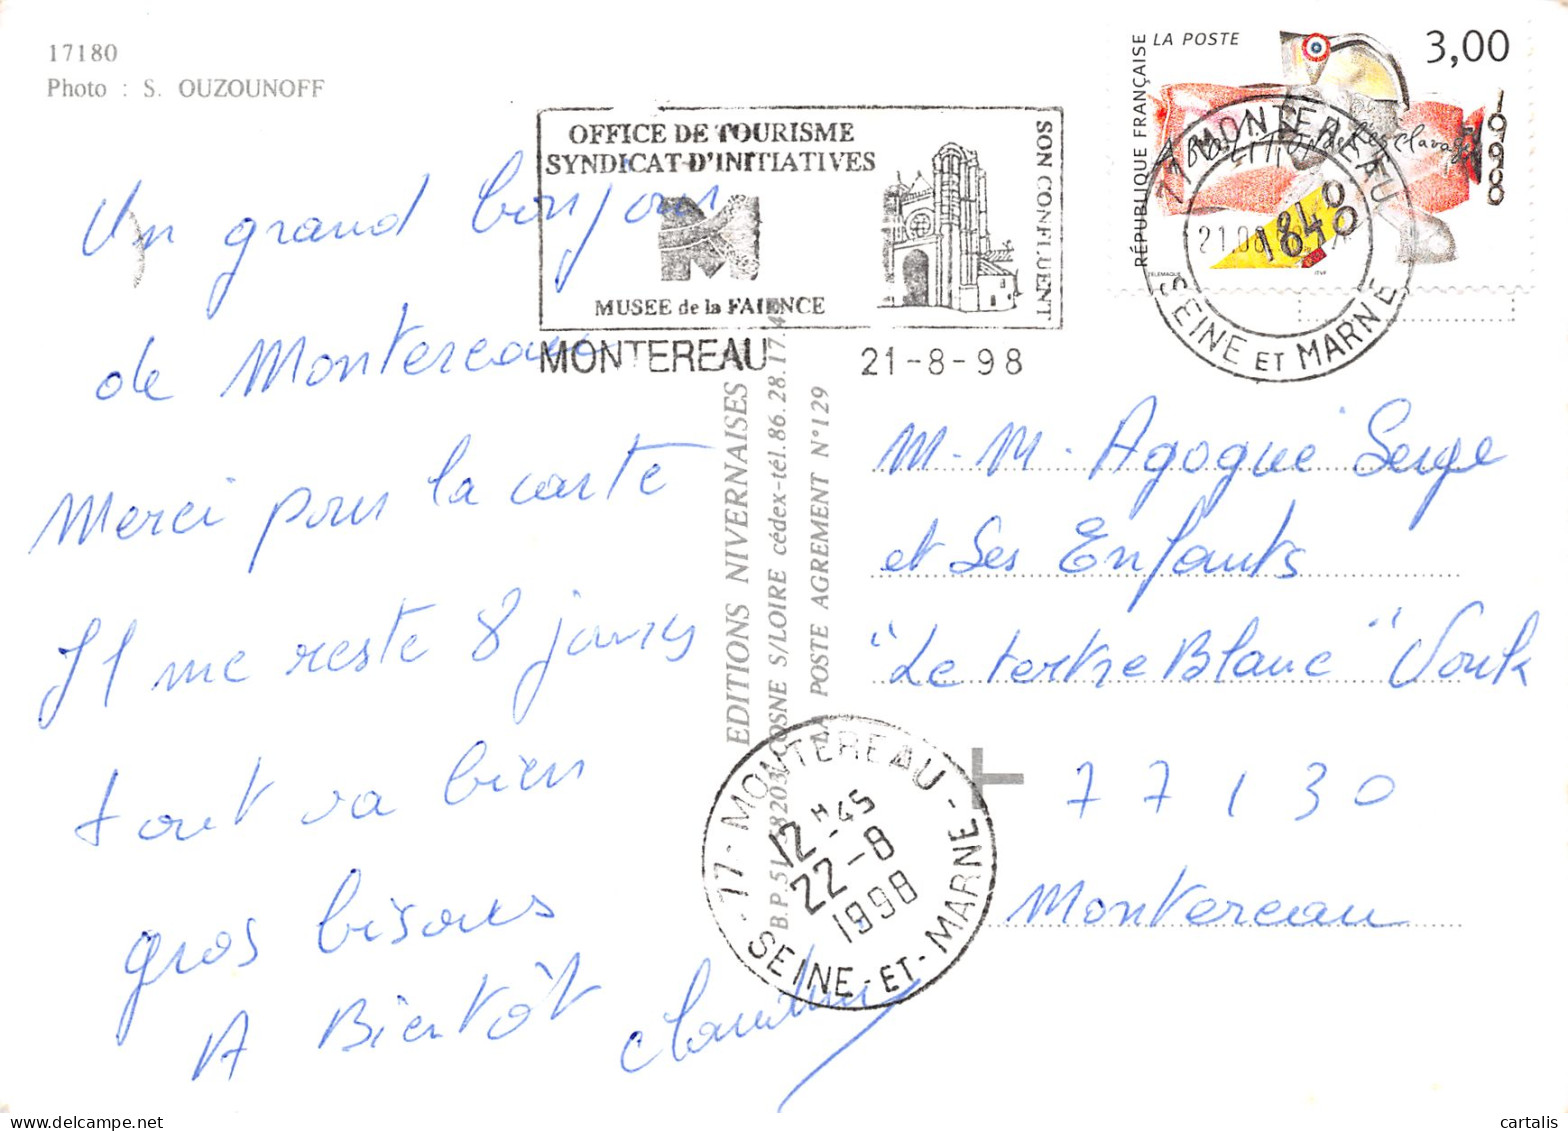 17180
Photo : S. OUZOUNOFF
Un grand bonjour
de Montereau
Merci pour la carte
Il me reste 8 jours
tout va bien
gros bisous
A Bientôt
OFFICE DE TOURISME
SYNDICAT-D'INITIATIVES
MUSEE de la FAIENCE
SON CONFLUENT
MONTEREAU 21-8-98
EDITIONS NIVERNAISES
COSNE S/LOIRE cédex-tél.86.28.17.4
POSTE AGREMENT N°129
RÉPUBLIQUE FRANÇAISE
LA POSTE 3,00
1998
77 MONTEREAU
SEINE ET MARNE
M. M. Agogué Serge
et Ses Enfants
"Le tertre Blanc"
77130
Montereau
77-MONTEREAU-
12H45
22-8
1998
SEINE-ET-MARNE
cartalis